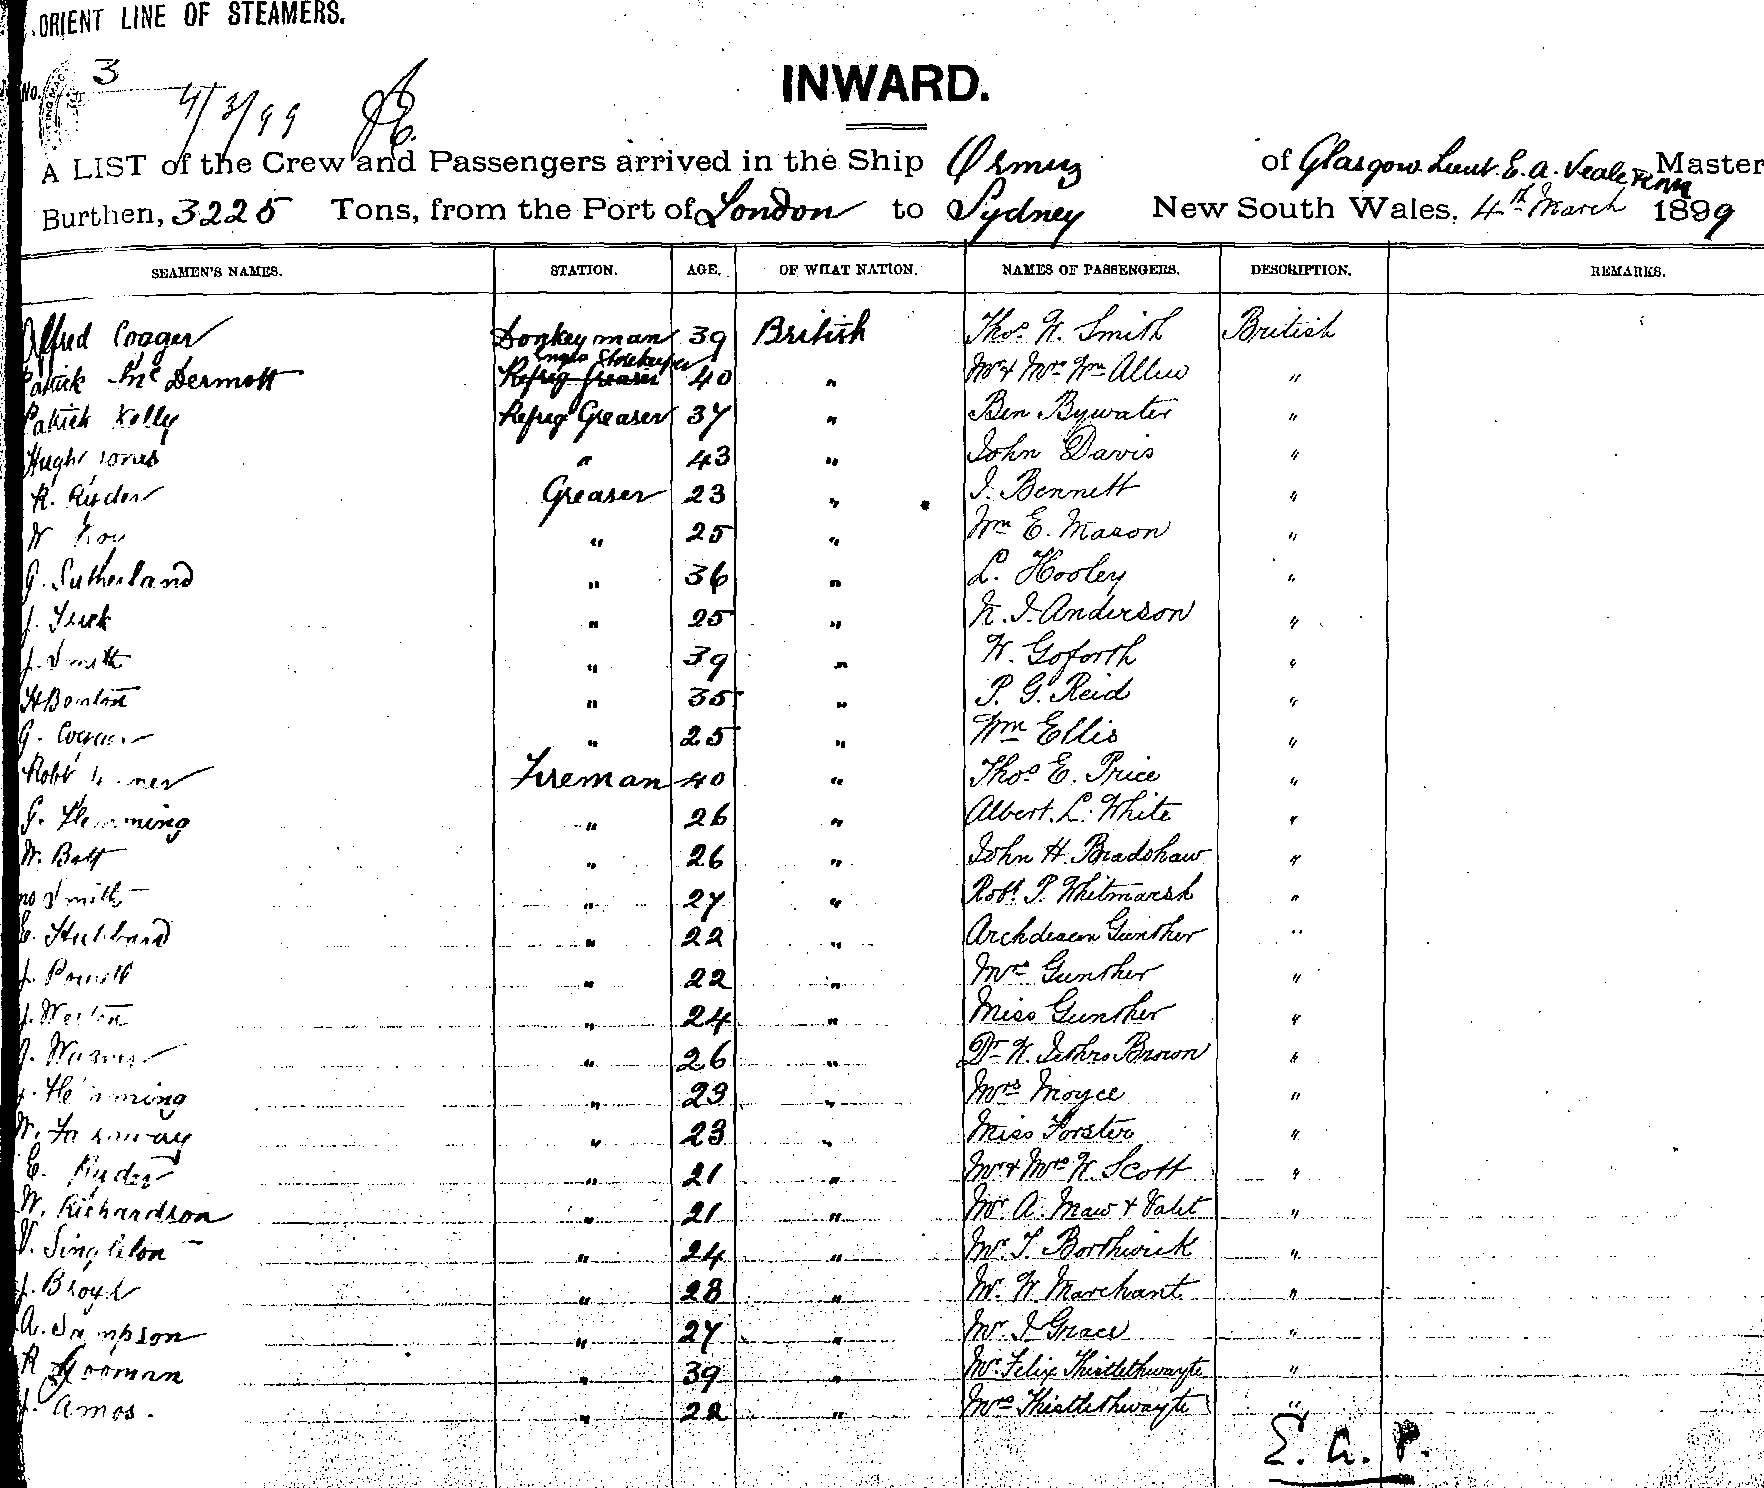 ORIENT LINE OF STEAMERS.
No. 3
4/3/99
INWARD.
A LIST of the Crew and Passengers arrived in the Ship Ormuz of Glasgow Lieut. E. A. Veale RNR Master
Burthen, 3225 Tons, from the Port of London to Sydney New South Wales, 4th March 1899
SEAMEN'S NAMES. STATION. AGE. OF WHAT NATION. NAMES OF PASSENGERS. DESCRIPTION. REMARKS.
Alfred Coager Donkeyman 39 British Thos. W. Smith British
Storekeeper
Patrick McDermott Refrig Greaser 40 " Mr & Mrs Wm Allen "
Patrick Kelly Refrig Greaser 37 " Ben Bywater "
Hugh Jones " 43 " John Davis "
R. Ryder Greaser 23 " J. Bennett "
W " 25 " Wm E. Mason "
G. Sutherland " 36 " L. Hooley "
J. " 25 " N. J. Anderson "
J. Smith " 39 " W. Goforth "
H " 35 " P. G. Reid "
G. " 25 " Wm Ellis "
Robt Fireman 40 " Thos E. Price "
G. Flemming " 26 " Albert. L. White "
W. Batt " 26 " John H. Bradshaw "
Smith " 27 " Robt. P. Whitmarsh "
E. Hubbard " 22 " Archdeacon Gunther "
J. Powell " 22 " Mrs Gunther "
J. Weston " 24 " Miss Gunther "
J. " 26 " Dr W. Jethro Brown "
Hemming " 23 " Mrs Moyce "
W. " 23 " Miss Forster "
E. Ryder " 21 " Mr & Mrs W. Scott "
W. Richardson " 21 " Mr A. Maw & Valet "
V. Singleton " 24 " Mr T. Borthwick "
J. " 28 " Mr. W. Marchant "
A. Sampson " 27 " Mr J Grace "
R Gooman " 39 " Mr. Felix Thistlethwayte "
J. Amos. " 22 " Mrs Thistlethwayte "
E. A. P.